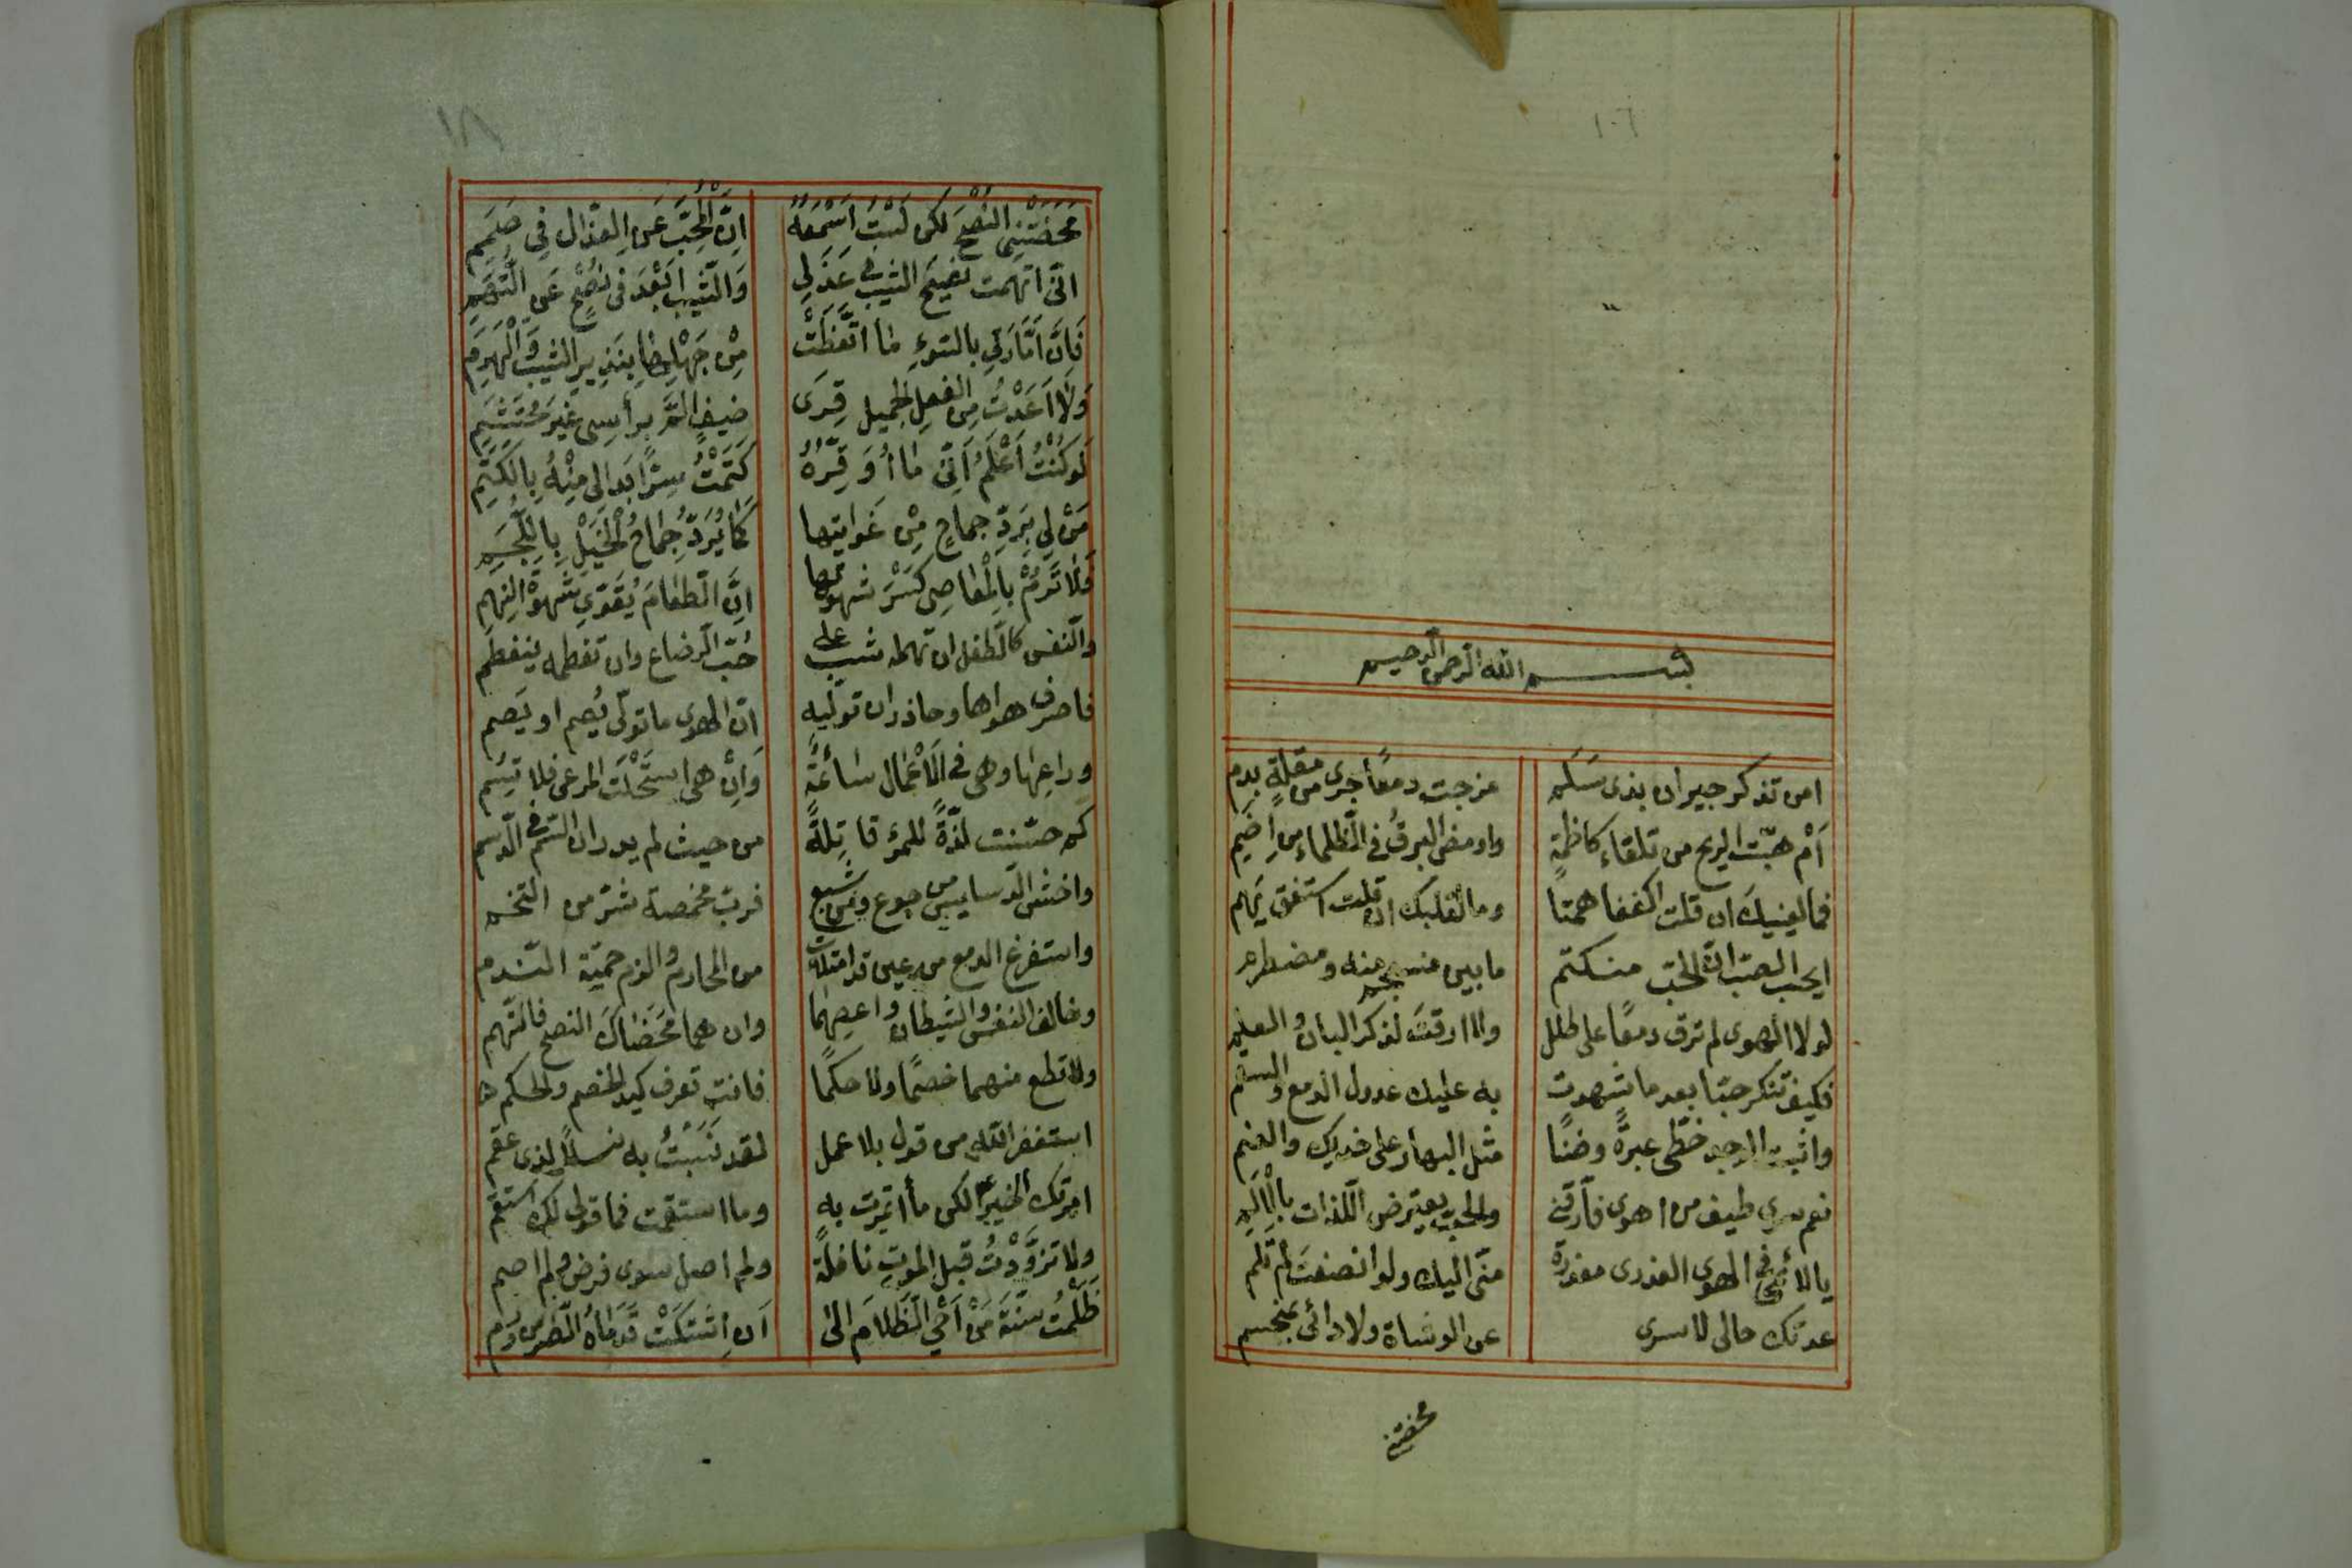 ١٠٦
بسم الله الرحمن الرحيم
امن تذكر جيران بذى سَلَم مزجت دمعًا جرى من مقلةٍ بدم
اَمْ هبّت الريح من تلقاء كاظمةٍ واومض البرقُ فى الظلماء من اِضَمِ
فما لعينيكَ ان قلت اكففا همتا وما لقلبك ان قلت استفق يَهِم
ايحسب الصبّ انّ الحبّ منكتم ما بين منسجم منه ومضطرم
لولا الهوى لم ترق دمعًا على طلل ولا ارقتَ لذكر البان والعلم
فكيف تنكر حبّا بعد ما شهدت به عليك عدول الدمع والسقم
واثبت الوجد خطّى عبرةً وضنًا مثل البهار على خديك والعنم
نعم سرى طيف من اهوى فأرّقنى والحب يعترض اللذات بالْاَلَمِ
يا لائمى فى الهوى العذرى معذرة منّى اليك ولو انصفتَ لم تلم
عدتك حالى لا سرى عن الوشاة ولا دائى بمنحسم
محضتنى
١٨
مَحَضْتَنِى النُّصْحَ لكن لَسْتُ اَسْمَعُهُ اِنَّ الْمُحِبَّ عَنِ العذّال فِي صَمَمِ
انّى اتهمت نصيحَ الشيب فى عَذَلِي وَالشّيب اَبْعَدُ فى نُصْحٍ عَنِ التُّهَمِ
فَاِنَّ اَمَّارَتِي بالسّوءِ مَا اتَّعَظَتْ مِنْ جَهْلِهَا بِنَذِيرِ الشيب وَالْهَرَمِ
وَلَا اَعَدَّتْ مِن الفعلِ الجميل قِرَى ضيفٍ المَّ برأسِى غَيْرَ مُحْتَشَمِ
لَوْ كُنْتُ اَعْلَمُ اَنّى مَا اُوَقِّرُهُ كَتَمْتُ سِرًّا بَدَا لِى مِنْهُ بِالكَتَمِ
مَنْ لِي بِرَدِّ جماحٍ مِنْ غَوايتها كَمَا يُرَدُّ جِمَاحُ الْخَيْلِ بِاللُّجُمِ
فَلَا تَرُمْ بِالْمَعَاصِى كَسْرَ شهوتها اِنَّ الطعَامَ يُقَوِّي شَهْوَةَ النَّهِمِ
والنفس كالطفل ان تهمله شب على حُبّ الرضاع وان تفطمه ينفطم
فاصرف هواها وحاذر ان توليه انّ الهوى ما تولّى يُصم او يَصم
وراعِها وهى فى الْاَعْمَال سَائمَةٌ وَاِنْ هى استَحْلَت المرعى فلا تسِم
كم حسّنت لذّةً للمرء قاتِلةً من حيث لم يدر ان السّم فى الدسم
واخش الدسايس من جوع ومن شبع فربّ مخمصة شرّ من التخم
واستفرغ الدمع من عين قد امتلأت من المحارم والزم حميّة الندم
وخالف النفس والشيطان واعصِهما وان هما محَضَاكَ النصح فاتّهم
ولا تطع منهما خصمًا ولا حكمًا فانت تعرف كيد الخصم والحكم
استغفر الله من قول بلا عمل لقد نَسَبْتُ به نسلاً لذى عقم
امرتك الخير لكن ما أتمرت به وما استقمت فما قولى لك استقم
ولا تزوَّدْتُ قبل الموتِ نافلةً ولم اصل سوى فرض ولم اصم
ظَلَمْتُ سُنَّةَ مَنْ اَحْيَ الظَلَامَ الى اَن اِشْتَكَتْ قَدَمَاهُ الضر من وَرم